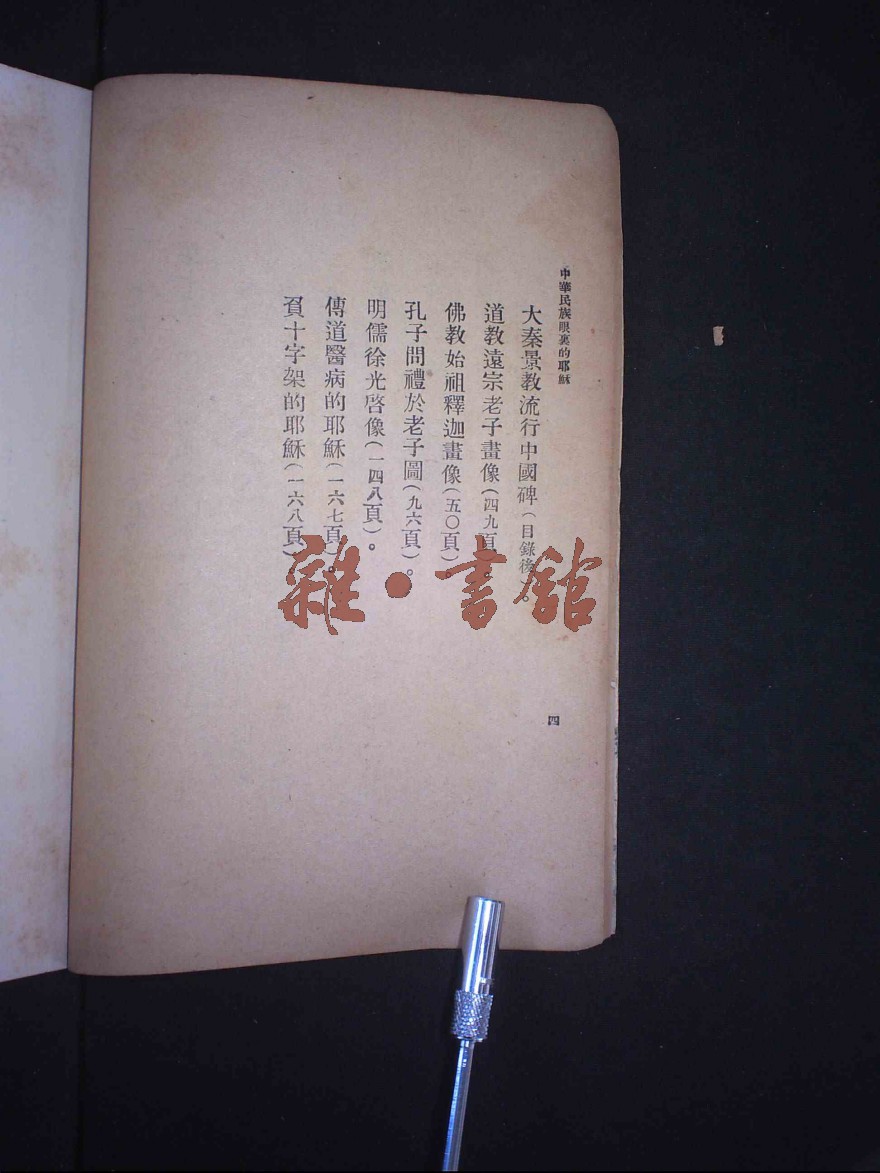 中華民族眼裏的耶穌
大秦景教流行中國碑(目錄後)。
道教遠宗老子畫像(四九頁)。
佛教始祖釋迦畫像(五〇頁)
孔子問禮於老子圖(九六頁)。
明儒徐光啓像(一四八頁)。
傳道醫病的耶穌(一六七頁)。
負十字架的耶穌(一六八頁)
四
雜・書館